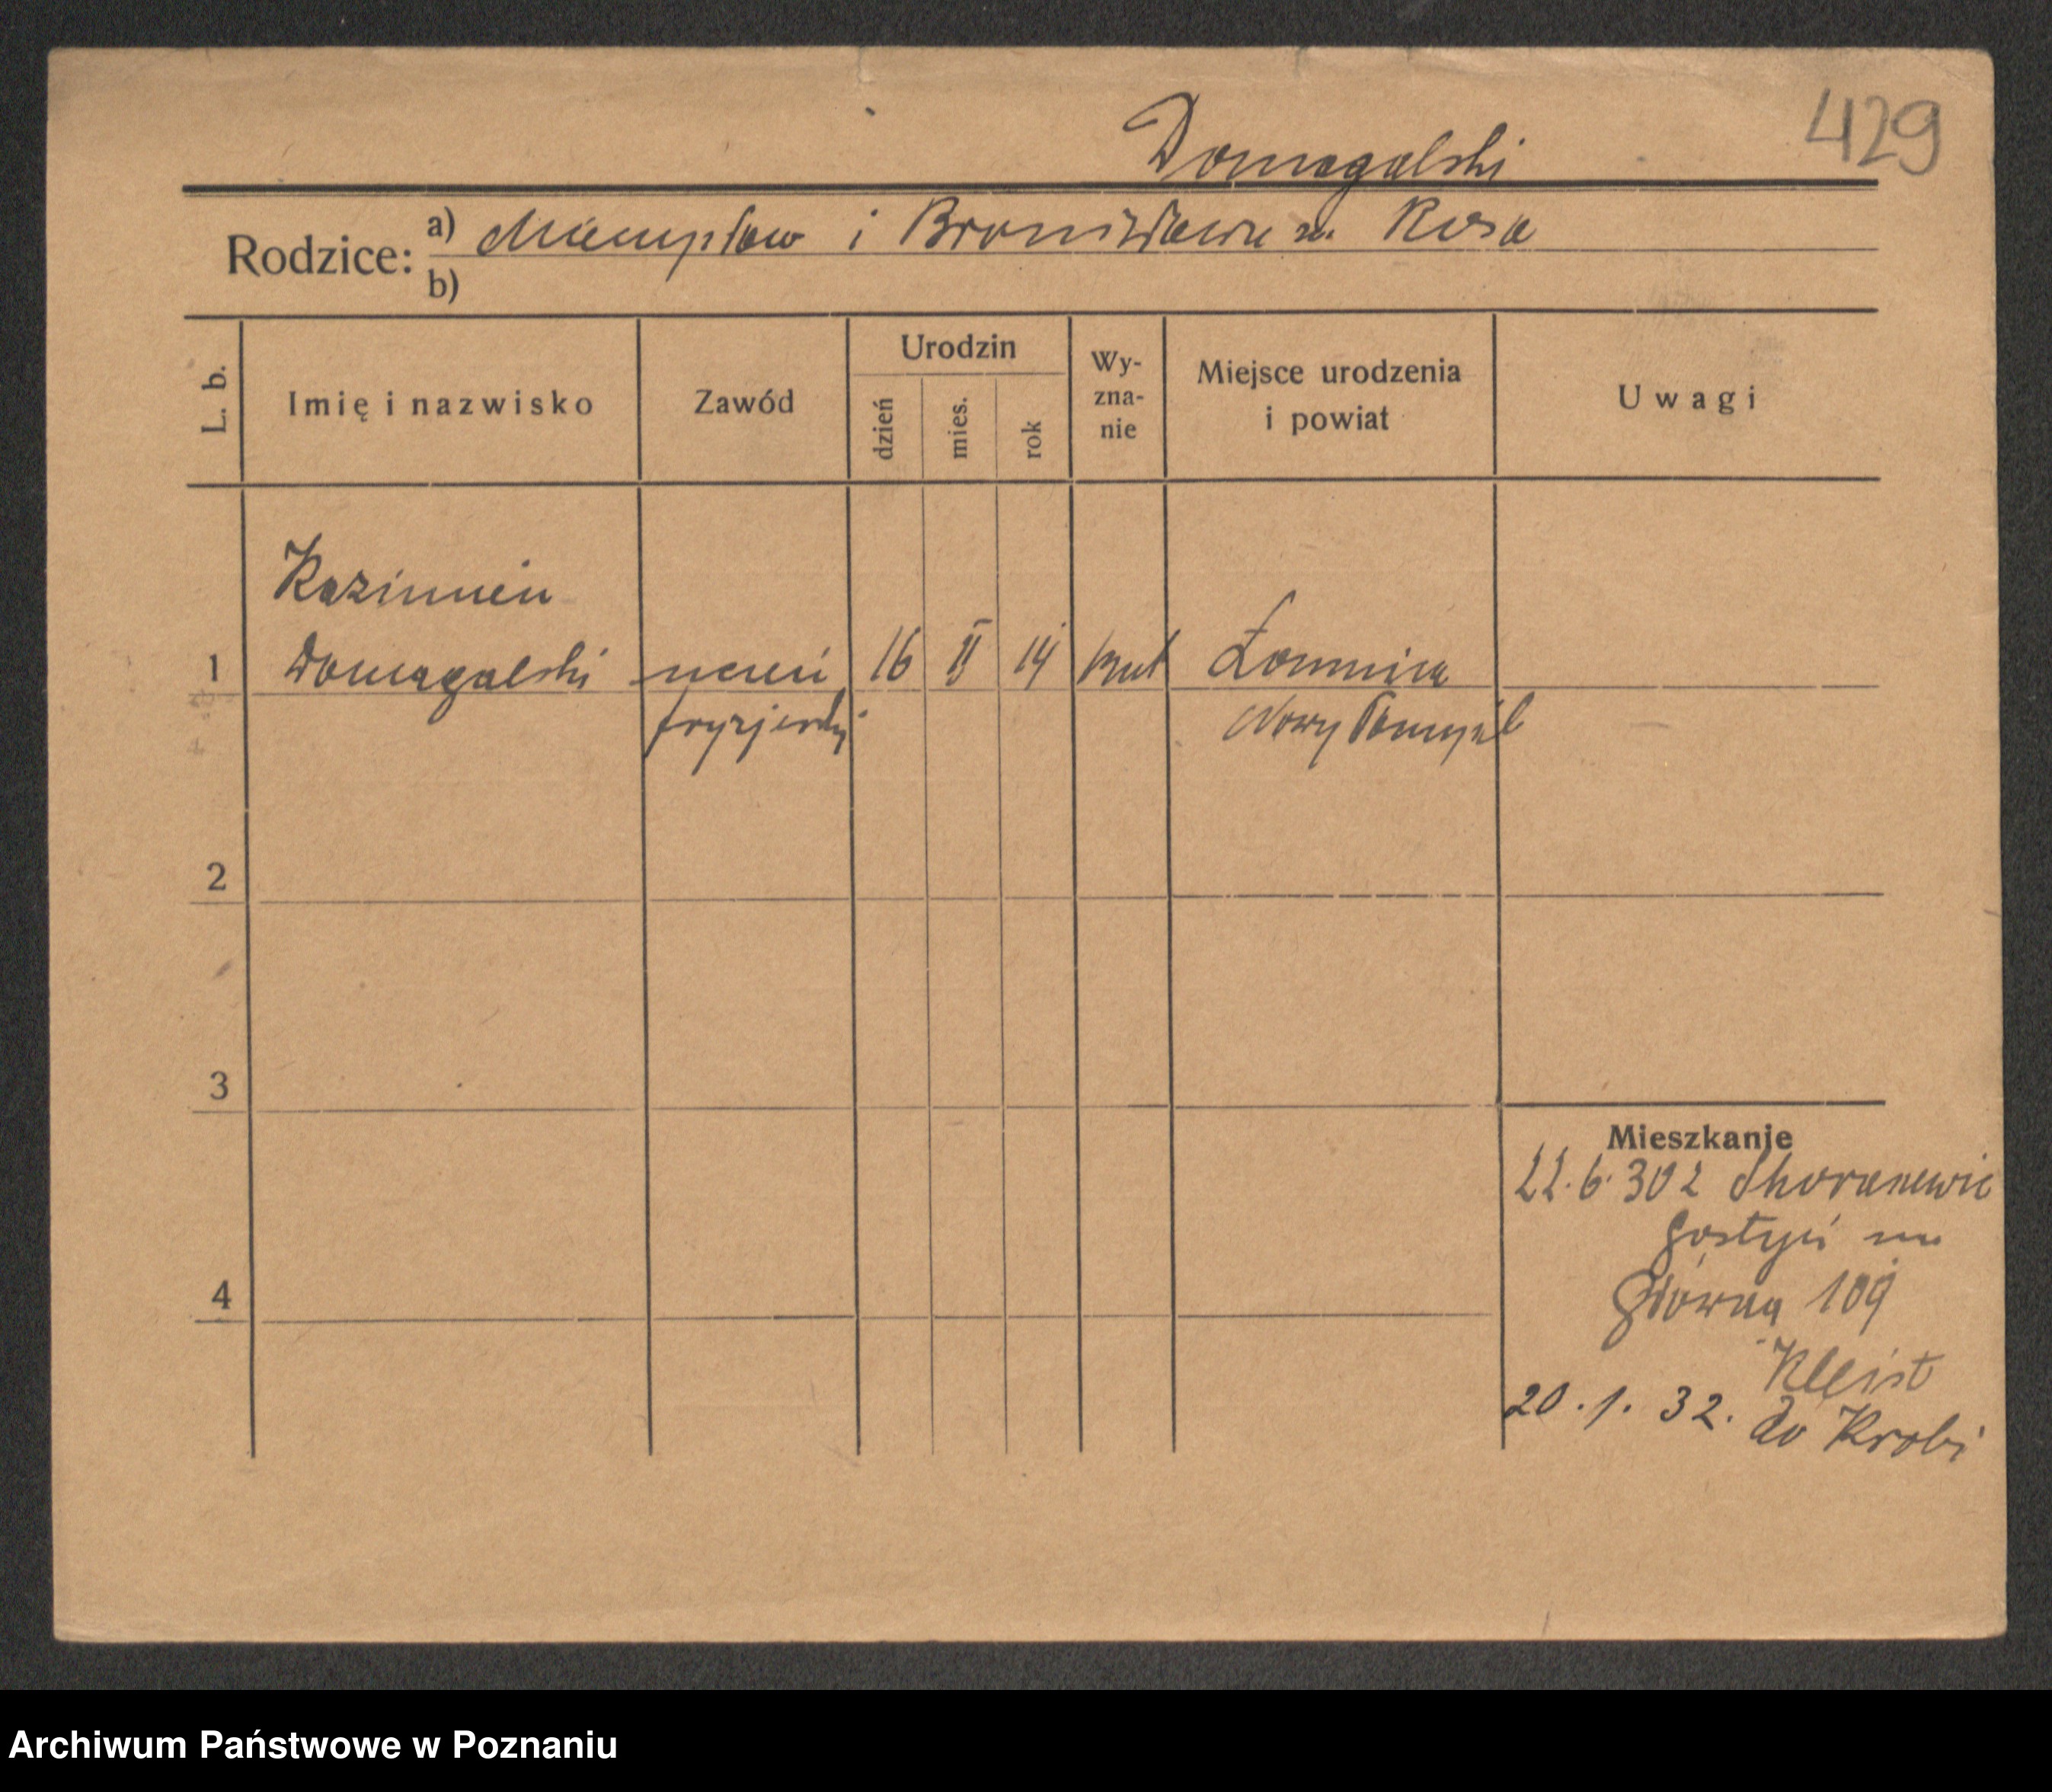 429
Domagalski
Rodzice: a) Mieczysław i Bronisława z. Rosa
b)
L. b.
Imię i nazwisko
Zawód
Urodzin
dzień
mies.
rok
Wy-
zna-
nie
Miejsce urodzenia
i powiat
Uwagi
Kazimierz
1 Domagalski uczeń 16 II 14 kat Łomnica
fryzjerski Nowy Tomyśl
2
3
4
Mieszkanie
22.6.30 z
Gostyń
Główna 109
Kleist
20.1.32. do Krobi
Archiwum Państwowe w Poznaniu